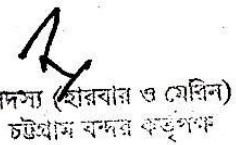 দস্য (হারবার ও মেরিন)
চট্টগ্রাম বন্দর কর্তৃপক্ষ